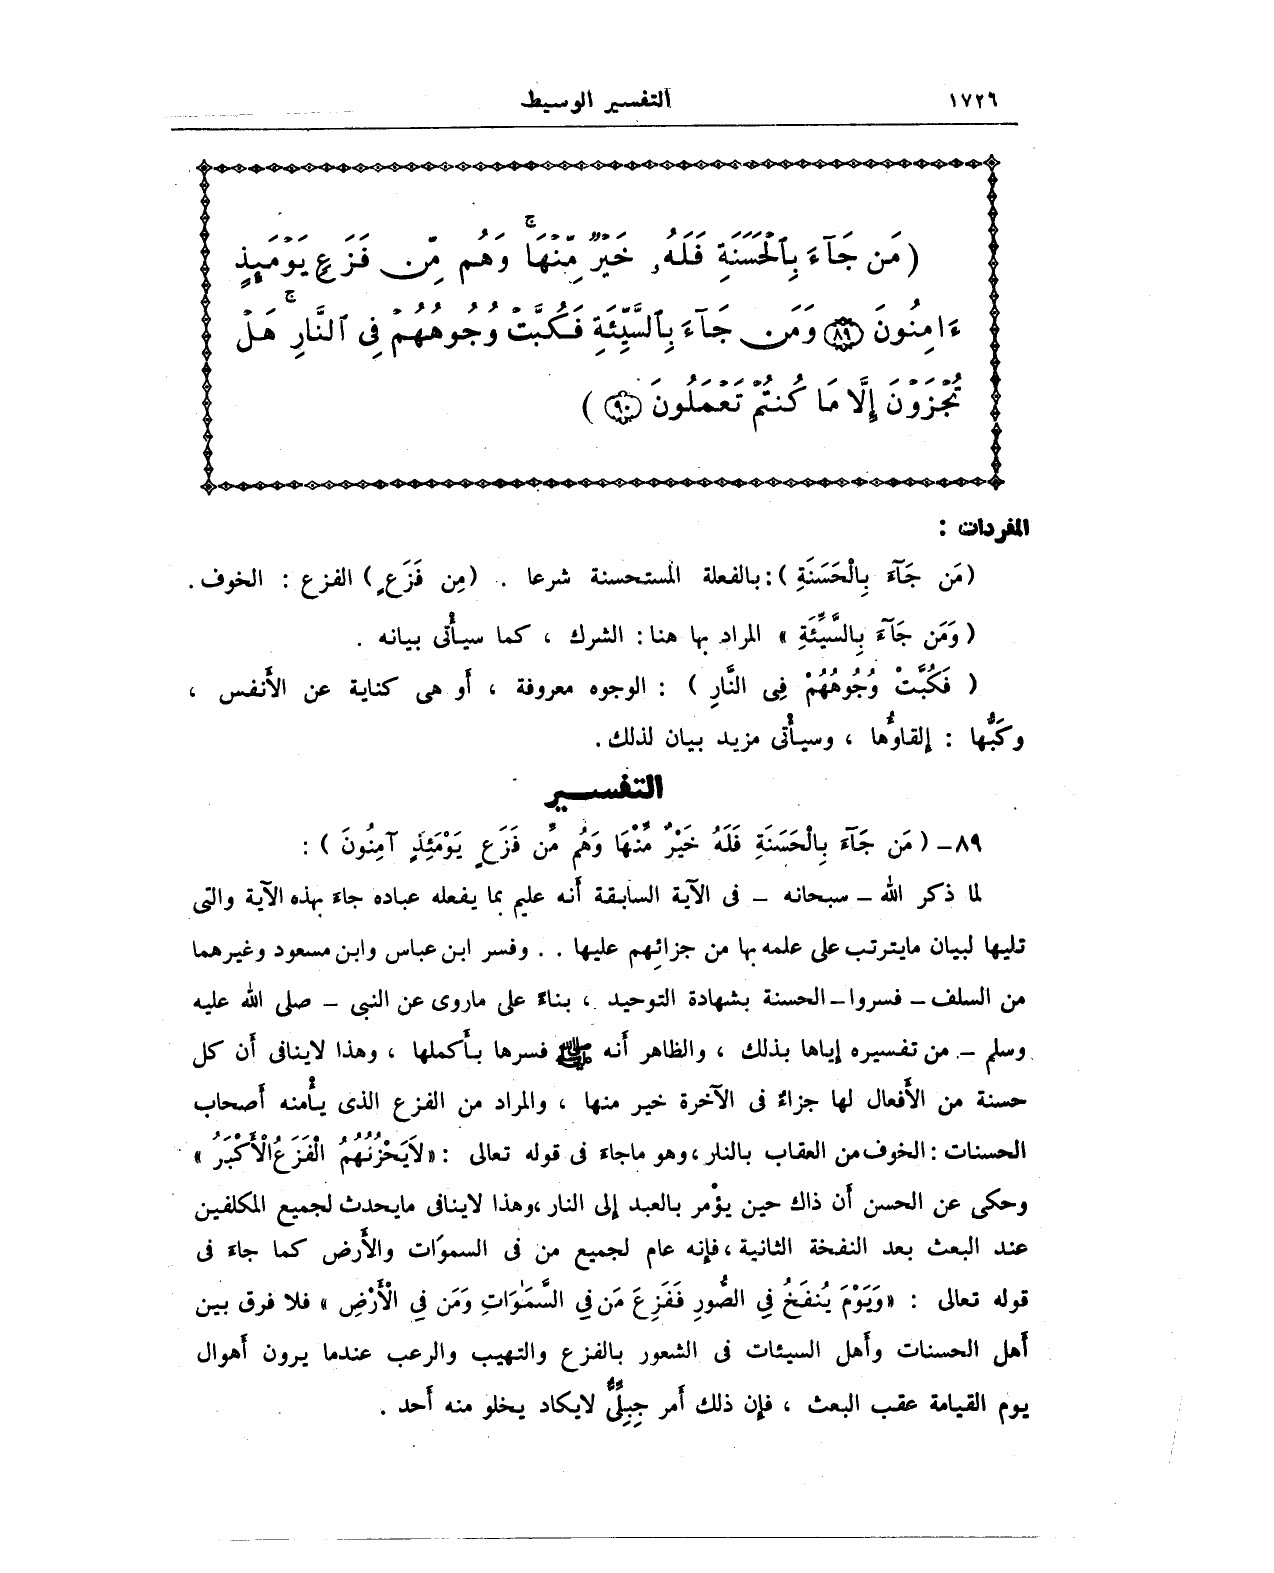 ١٧٢٦
التفسير الوسيط
(مَن جَآءَ بِٱلۡحَسَنَةِ فَلَهُۥ خَيۡرٞ مِّنۡهَاۚ وَهُم مِّن فَزَعٖ يَوۡمَئِذٍ
ءَامِنُونَ ٨٩ وَمَن جَآءَ بِٱلسَّيِّئَةِ فَكُبَّتۡ وُجُوهُهُمۡ فِى ٱلنَّارِۚ هَلۡ
تُجۡزَوۡنَ إِلَّا مَا كُنتُمۡ تَعۡمَلُونَ ٩٠)
المفردات :
(مَن جَآءَ بِالْحَسَنَةِ): بالفعلة المستحسنة شرعا . (مِن فَزَعٍ) الفزع : الخوف .
(وَمَن جَآءَ بِالسَّيِّئَةِ» المراد بها هنا: الشرك ، كما سيأْتى بيانه .
( فَكُبَّتْ وُجُوهُهُمْ فِى النَّارِ ) : الوجوه معروفة ، أَو هى كناية عن الأَنفس ،
وكَبُّها : إِلقاؤُها ، وسيأْتى مزيد بيان لذلك .
التفســـير
٨٩ – ( مَن جَآءَ بِالْحَسَنَةِ فَلَهُ خَيْرٌ مِّنْهَا وَهُم مِّن فَزَعٍ يَوْمَئِذٍ آمِنُونَ ) :
لما ذكر الله – سبحانه – فى الآية السابقة أَنه عليم بما يفعله عباده جاءَ بهذه الآية والتى
تليها لبيان مايترتب على علمه بها من جزائِهم عليها . . وفسر ابن عباس وابن مسعود وغيرهما
من السلف – فسروا – الحسنة بشهادة التوحيد ، بناءً على ماروى عن النبى – صلى الله عليه
وسلم – من تفسيره إِياها بذلك ، والظاهر أَنه ﷺ فسرها بأَكملها ، وهذا لاينافى أَن كل
حسنة من الأَفعال لها جزاءٌ فى الآخرة خير منها ، والمراد من الفزع الذى يأْمنه أَصحاب
الحسنات : الخوف من العقاب بالنار ، وهو ماجاءَ فى قوله تعالى : «لَايَحْزُنُهُمُ الْفَزَعُ الْأَكْبَرُ»
وحكى عن الحسن أَن ذاك حين يؤْمر بالعبد إِلى النار ، وهذا لاينافى مايحدث لجميع المكلفين
عند البعث بعد النفخة الثانية ، فإِنه عام لجميع من فى السموَات والأَرض كما جاءَ فى
قوله تعالى : «وَيَوْمَ يُنفَخُ فِي الصُّورِ فَفَزِعَ مَن فِي السَّمَٰوَاتِ وَمَن فِي الْأَرْضِ» فلا فرق بين
أَهل الحسنات وأَهل السيئات فى الشعور بالفزع والتهيب والرعب عندما يرون أَهوال
يوم القيامة عقب البعث ، فإِن ذلك أَمر جِبِلِّىٌّ لايكاد يخلو منه أَحد .